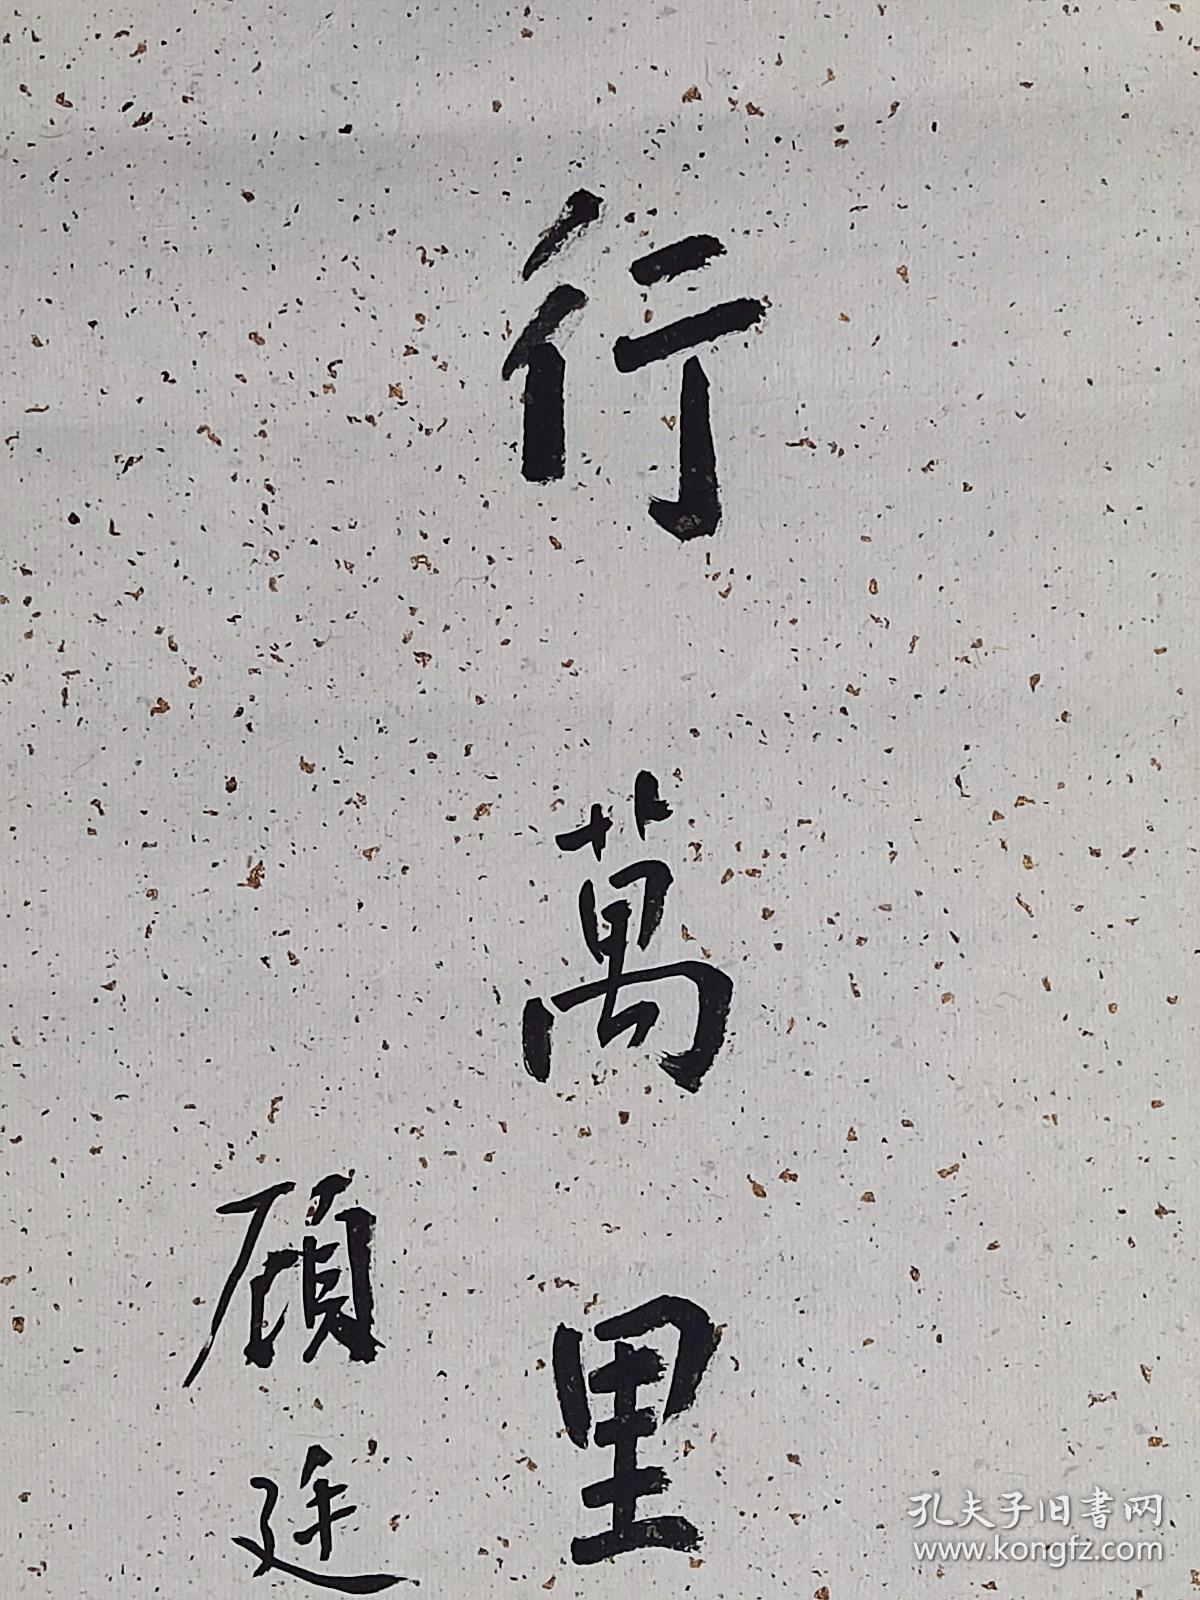 行萬里
顾廷
孔夫子旧書网
www.kongfz.com